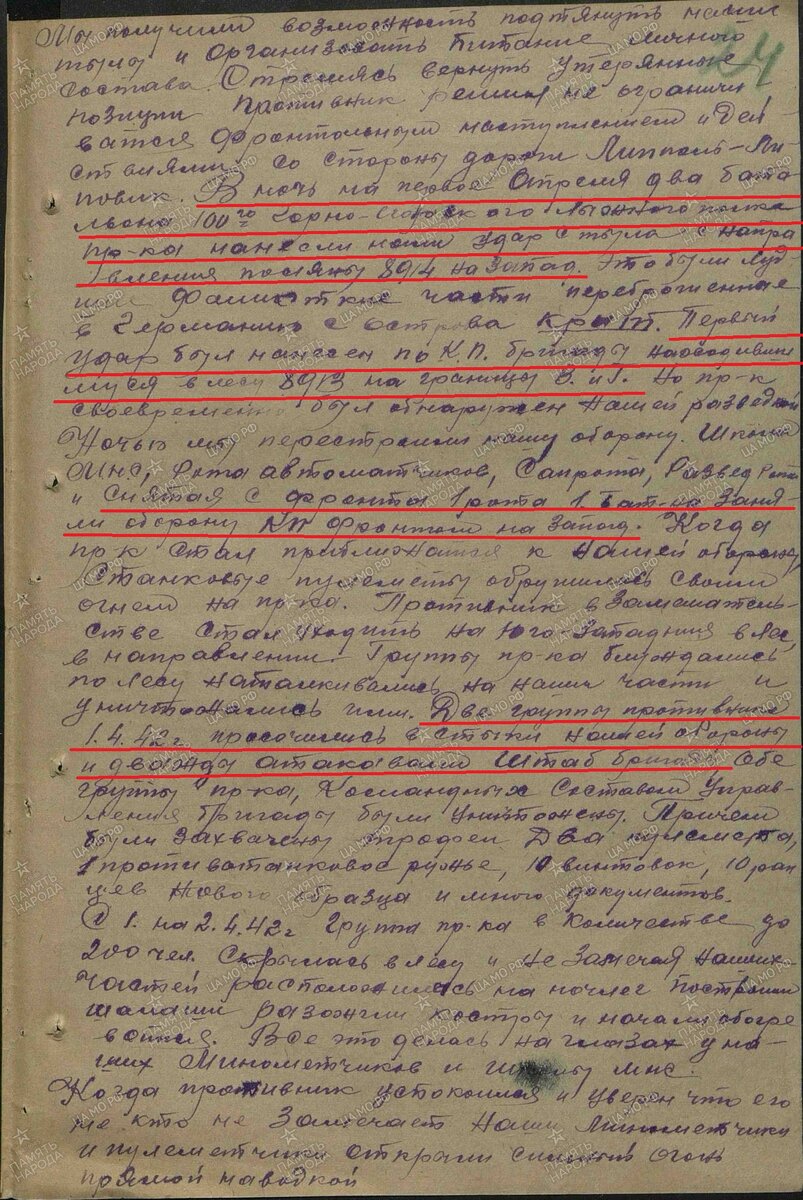 24
Мы получили возможность подтянуть наши
тылы и организовать питание личного
состава. Стремясь вернуть утерянные
позиции противник решил не ограничи
ватся фронтольным наступлением и дей
ствиями со стороны дороги Липполь-Ли
повик. В ночь на первое Апреля два бата
льона 100го Горно- лыжного полка
пр-ка нанесли нам удар с тыла с напра
вления поляны 8914 на Запад. Это были
части переброшенные
в Германию с острова Крит. Первый
удар был нанесен по К.П. бригады находивше
муся в лесу 8913 на границы 3. и 1. Но пр-к
своевременно был обнаружен нашей разведкой
Ночью мы перестроили нашу оборону. Школа
Мнс, рота автоматчиков, Сапрота, Развед рота
и снятая с фронта 1 рота 1. бат-на заня-
ли оборону КП фронтом на Запад. Когда
пр-к стал приближатся к нашей обороне
Станковые пулеметы обрушились своим
огнем на пр-ка. Противник в замешатель-
стве стал уходить на юго западния в лес
в направлении. Группы пр-ка блуждались
по лесу наталкивались на наши части и
уничтожались ими. Две группы противника
1.4.42г просочились в стыки нашей обороны
и дважды атаковали Штаб бригады Обе
группы пр-ка, командных составом Управ-
ления бригады были уничтожены. Причем
были захвачены трофеи Два пулемета,
1 противотанковое ружье, 10 винтовок, 10 ран
цев нового образца и много документов.
С 1. на 2.4.42г Группа пр-ка в количестве до
200 чел. Скрылась в лесу и не замечая наших
частей расположилась на ночлег построили
шалаши разожгли костры и начали обогре
ватся. Все это делась на глазах у на-
ших Минометчиков и школы мнс.
Когда противник успокоился и уверен что его
не кто не замечает Наши Минометчики
и пулеметчики открыли сильный огонь
прямой наводкой
ПАМЯТЬ НАРОДА
ЦАМО.РФ